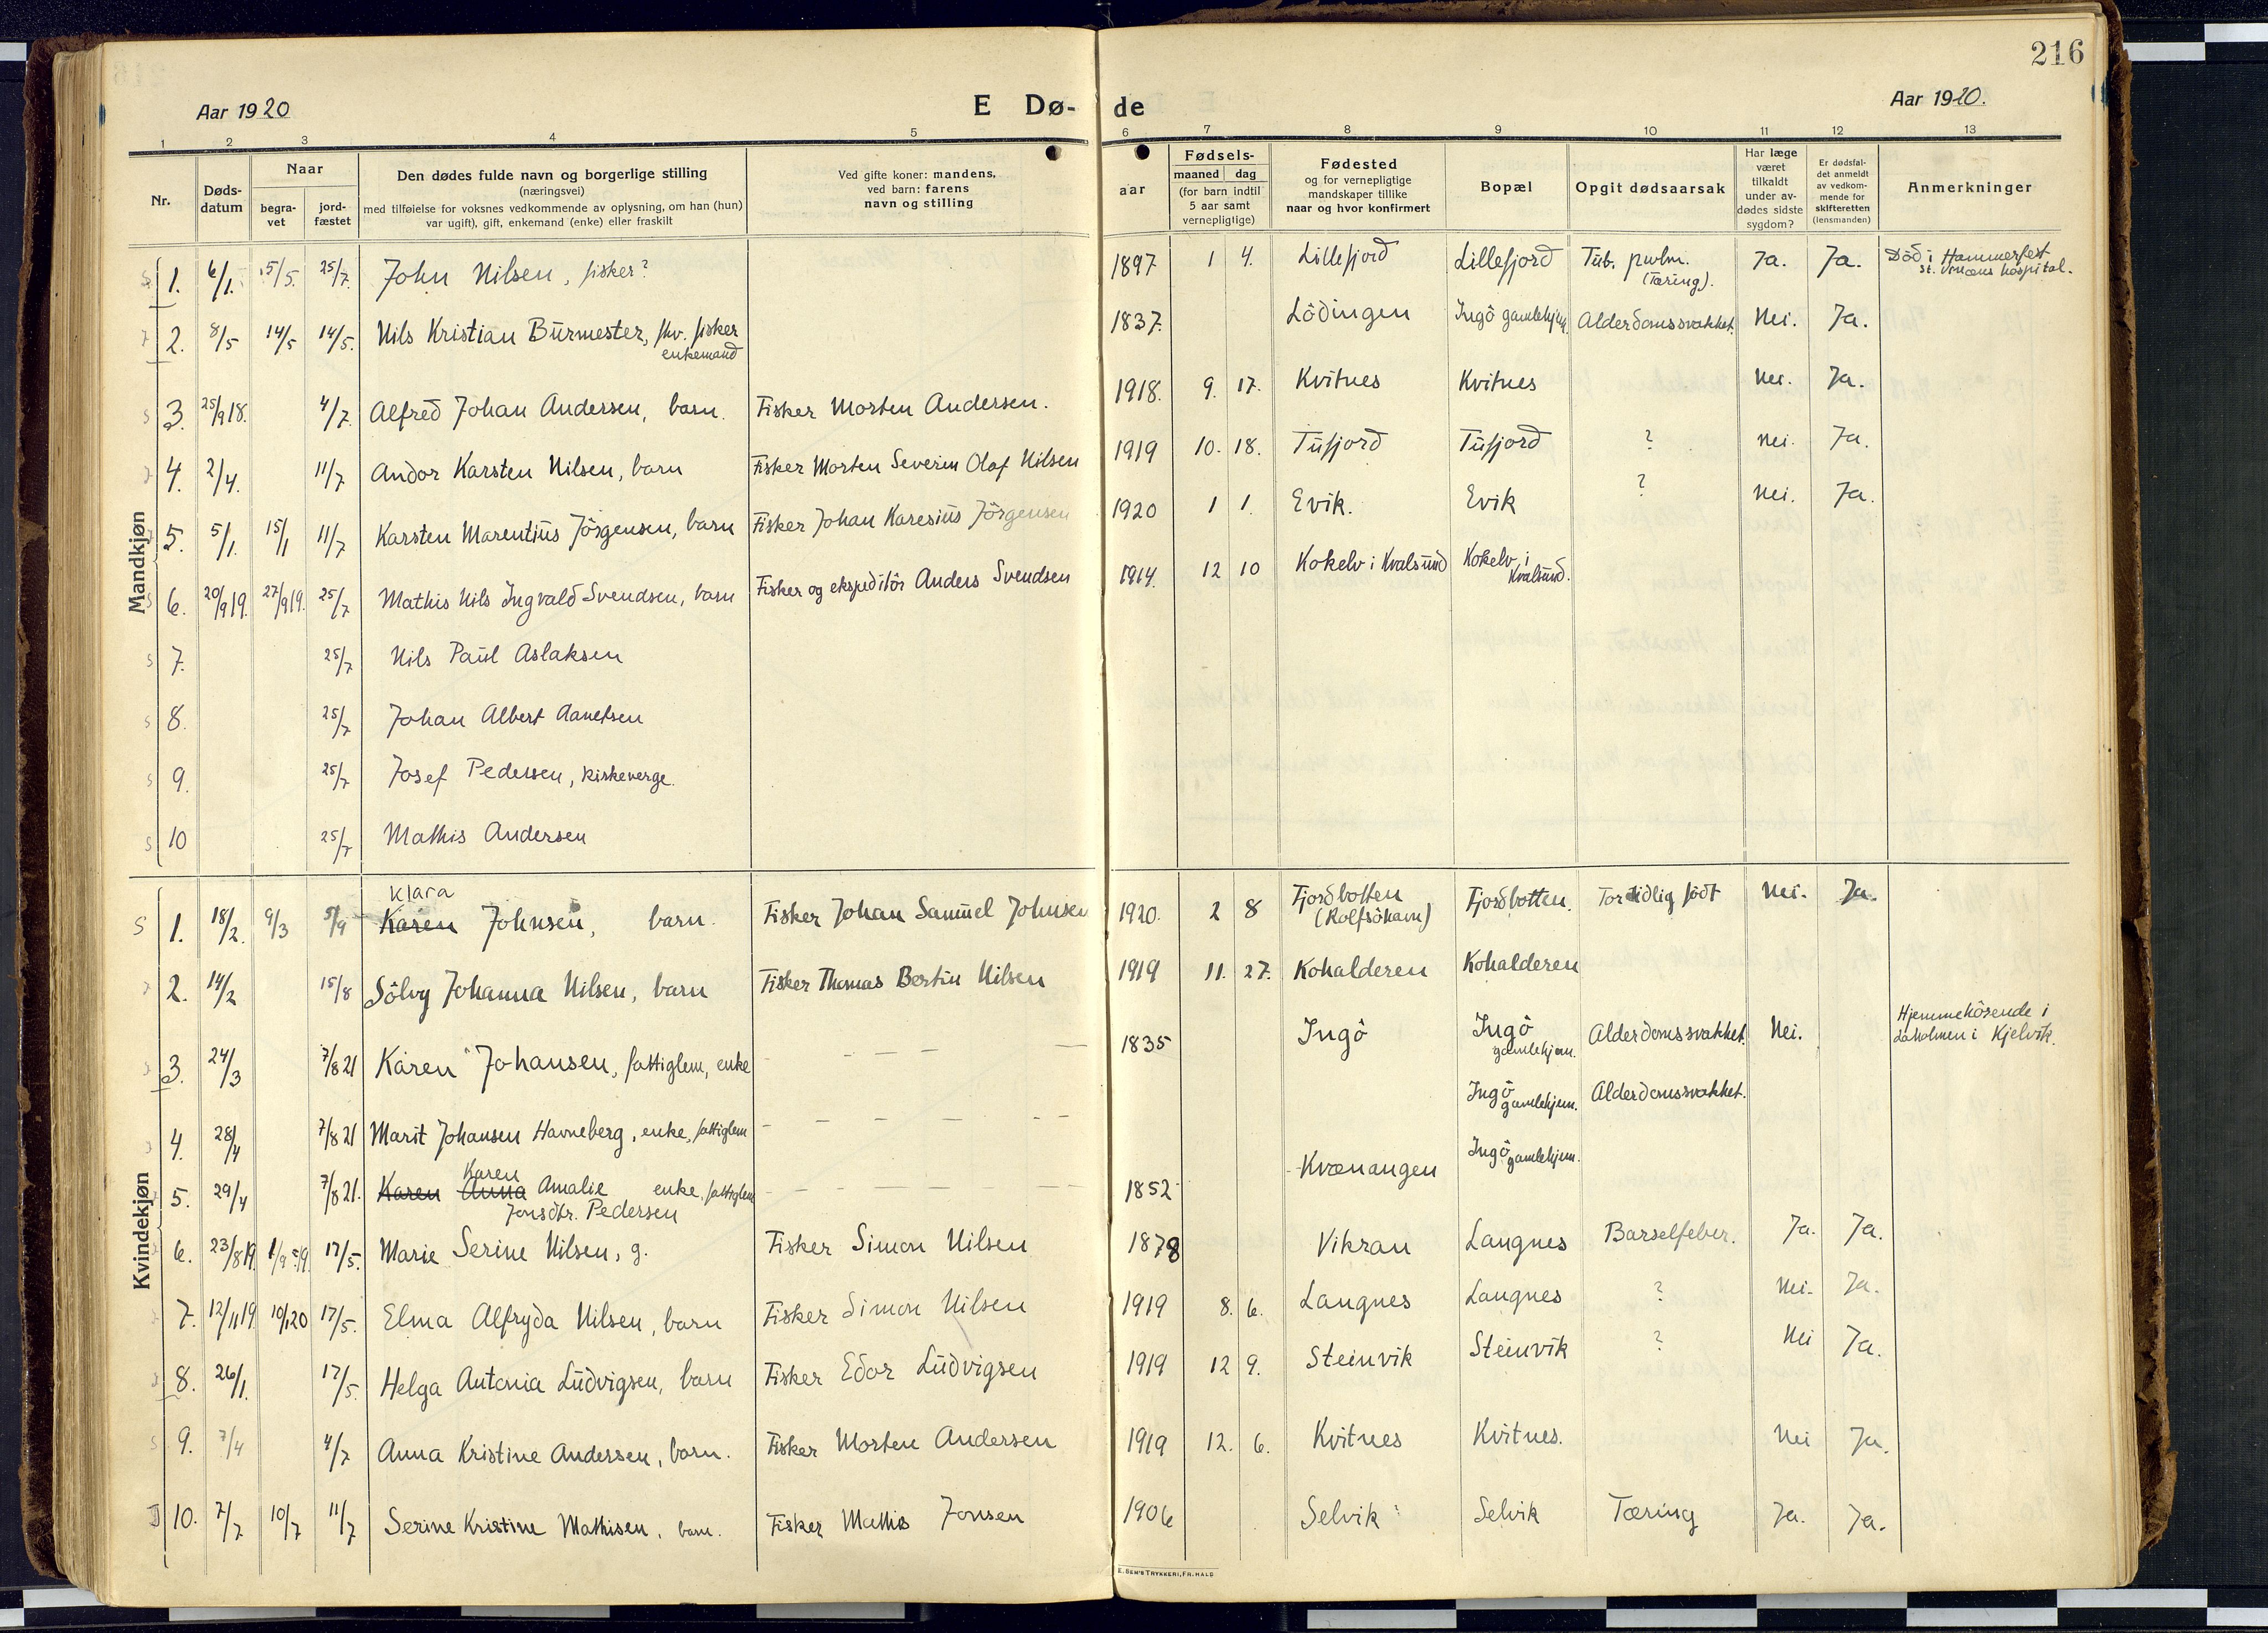 216
Aar 1920 E Dø- de Aar 1920.
1 2 3 4 5 6 7 8 9 10 11 12 13
Nr.
Døds-
datum
Naar
begra-
vet
jord-
fæstet
Den dødes fulde navn og borgerlige stilling
(næringsvei)
med tilføielse for voksnes vedkommende av oplysning, om han (hun)
var ugift), gift, enkemand (enke) eller fraskilt
Ved gifte koner: mandens,
ved barn: farens
navn og stilling
aar
Fødsels-
maaned dag
(for barn indtil
5 aar samt
vernepligtige)
Fødested
og for vernepligtige
mandskaper tillike
naar og hvor konfirmert
Bopæl
Opgit dødsaarsak
Har læge
været
tilkaldt
under av-
dødes sidste
sygdom?
Er dødsfal-
det anmeldt
av vedkom-
mende for
skifteretten
(lensmanden)
Anmerkninger
Mandkjøn
1. 6/1. 15/5. 25/7. John Nilsen, fisker? 1897 1 4. Lillefjord Lillefjord Tub. pulm. Ja. Ja. Död i Hammerfest
(Tæring). hospital.
2. 8/5 14/5 14/5. Nils Kristian Burmester, fhv. fisker 1837. Lödingen Ingö gamlehjem Alderdomssvakhet. Nei. Ja.
enkemand
3. 25/9 18. 4/7. Alfred Johan Andersen, barn. Fisker Morten Andersen. 1918. 9. 17. Kvitnes Kvitnes Nei. Ja.
4. 2/4. 11/7 Andor Karsten Nilsen, barn Fisker Morten Severin Olaf Nilsen 1919 10. 18. Tufjord Tufjord ? Nei. Ja.
5. 5/1. 15/1 11/7 Karsten Marentius Jörgensen, barn Fisker Johan Karesius Jörgensen 1920 1 1. Evik. Evik ? Nei. Ja.
6. 20/9 19. 27/9 19. 25/7 Mathis Nils Ingvald Svendsen, barn Fisker og ekspeditör Anders Svendsen 1914. 12 10 Kokelv i Kvalsund Kokelv i
Kvalsund.
7. 25/7 Nils Paul Aslaksen
8. 25/7 Johan Albert Aanetsen
9. 25/7 Josef Pedersen, kirkeverge.
10 25/7 Mathis Andersen
Kvindekjøn
Klara
1. 18/2. 9/3 5/9 Karen Johnsen, barn. Fisker Johan Samuel Johnsen 1920. 2 8 Fjordbotten Fjordbotten. For tidlig födt Nei. Ja.
(Rolfsöhavn)
2. 14/2 15/8 Sölvy Johanna Nilsen, barn Fisker Thomas Bertin Nilsen 1919 11. 27. Kohalderen Kohalderen
3. 24/3 7/8 21 Karen Johansen, fattiglem, enke 1835 Ingö Ingö Alderdomssvakhet. Nei. Hjemmehörende i
gamlehjem. i Kjelvik.
4. 28/4 7/8 21 Marit Johansen Havneberg, enke, fattiglem Ingö Alderdomssvakhet.
gamlehjem.
Karen
5. 29/4 7/8 21. Karen Anna Amalie enke, fattiglem 1852 Kvænangen Ingö gamlehjem.
Jonsdtr. Pedersen
6. 23/8 19. 1/9 19. 17/5. Marie Serine Nilsen, g. Fisker Simon Nilsen 1878 Vikran Langnes Barselfeber. Ja. Ja.
7. 12/11 19. 10/1 20 17/5. Elma Alfryda Nilsen, barn Fisker Simon Nilsen 1919 8. 6. Langnes Langnes ? Nei. Ja.
8. 26/1. 17/5. Helga Antonia Ludvigsen, barn Fisker Edor Ludvigsen 1919 12 9. Steinvik Steinvik ? Nei Ja.
9. 7/4 4/7 Anna Kristine Andersen, barn. Fisker Morten Andersen 1919 12. 6. Kvitnes Kvitnes. Nei Ja.
10. 7/7 10/7 11/7 Serine Kristine Mathisen, barn. Fisker Mathis Jonsen 1906 Selvik Selvik Tæring Ja. Ja.
E. SEM'S TRYKKERI, FR.HALD